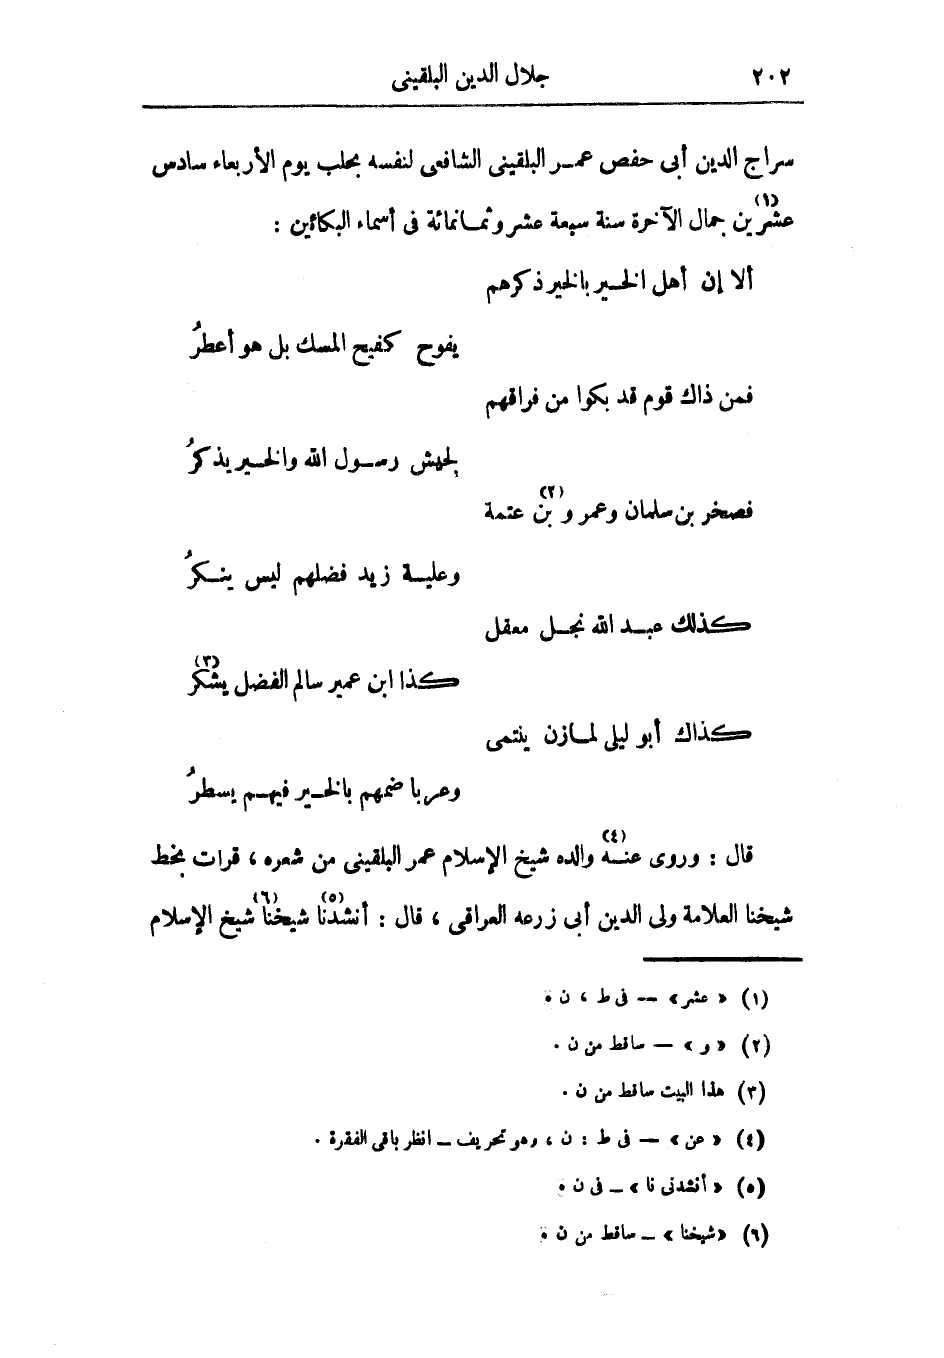 ٢٠٢ جلال الدين البلقينى
سراج الدين أبى حفص عمر البلقينى الشافعى لنفسه بحلب يوم الأربعاء سادس
عشرين(١) جمال الآخرة سنة سبعة عشر وثمانمائة فى أسماء البكائين :
ألا إن أهل الخير بالخير ذكرهم
يفوح كفيح المسك بل هو أعطرُ
فمن ذاك قوم قد بكوا من فراقهم
لجيش رسول الله والخير يذكرُ
فصخر بن سلمان وعمر و(٢)بن عتمة
وعلية زيد فضلهم ليس ينكرُ
كذلك عبد الله نجل معقل
كذا ابن عمير سالم الفضل يشكر(٣)
كذاك أبو ليلى لمازن ينتمى
وعربا ضمهم بالخير فيهم يسطرُ
قال : وروى عنه(٤) والده شيخ الإسلام عمر البلقينى من شعره ، قرات بخط
شيخنا العلامة ولى الدين أبى زرعه العراقى ، قال : أنشدنا(٥) شيخنا(٦) شيخ الإسلام
(١) « عشر » — فى ط ، ن .
(٢) « و » — ساقط من ن .
(٣) هذا البيت ساقط من ن .
(٤) « عن » — فى ط : ن ، وهو تحريف — انظر باقى الفقرة .
(٥) « أنشدنى نا » — فى ن .
(٦) « شيخنا » — ساقط من ن .